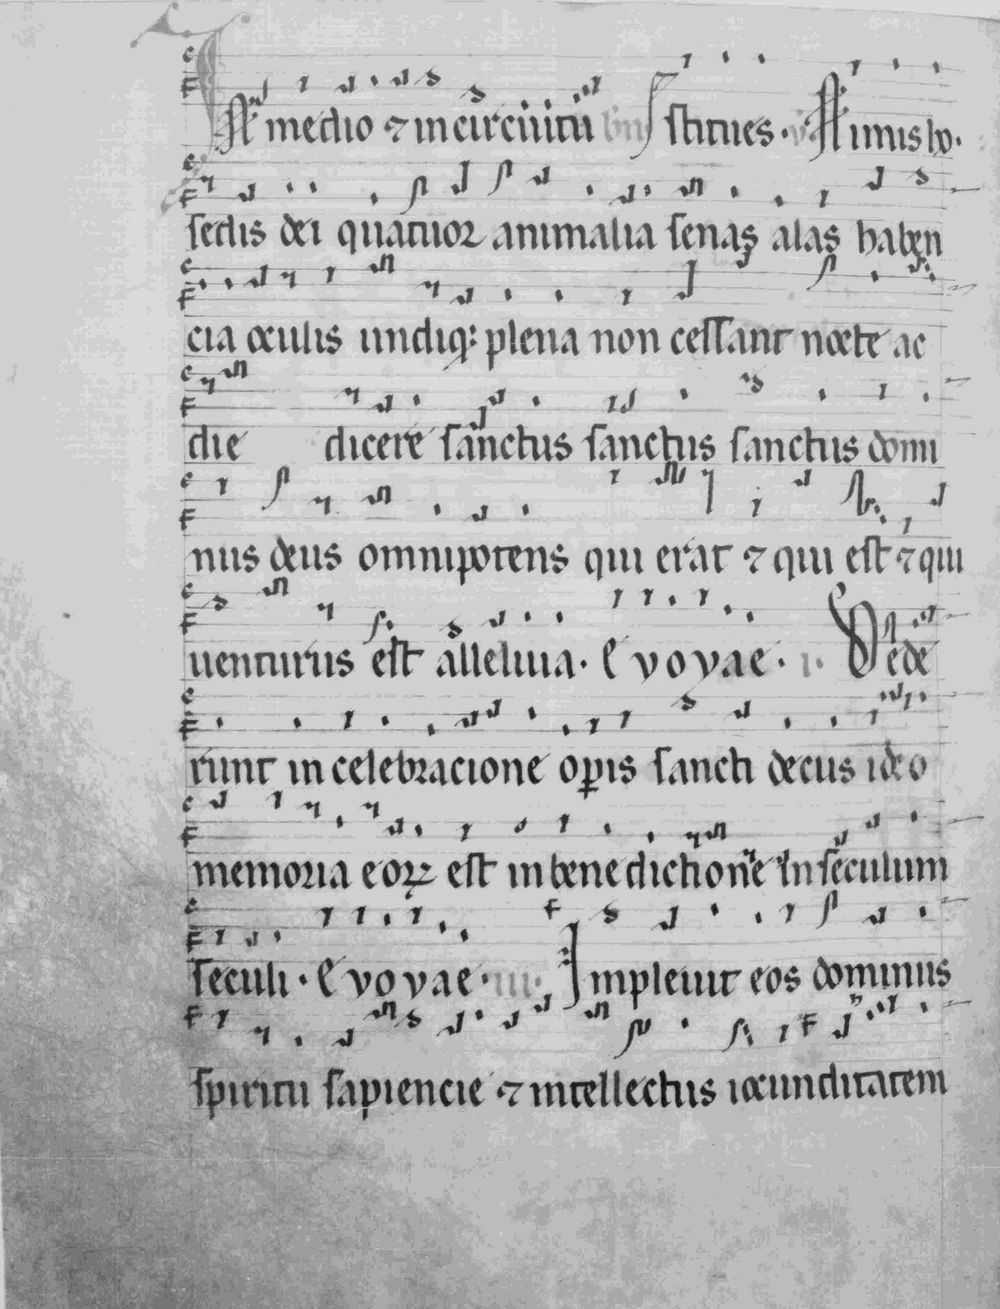 In medio ⁊ in circuitu stitues · A limis ho ·
sedis dei quatuor animalia senas alas haben
cia oculis undiq; plena non cessant nocte ac
die dicere sanctus sanctus sanctus domi
nus deus omnipotens qui erat ⁊ qui est ⁊ qui
uenturus est alleluia · E v o v a e · i · Dede
runt in celebracione opis sancti decus ideo
memoria eoꝝ est in benedictione In seculum
seculi · E v o v a e · iii · Impleuit eos dominus
spiritu sapiencie ⁊ intellectus iocunditatem